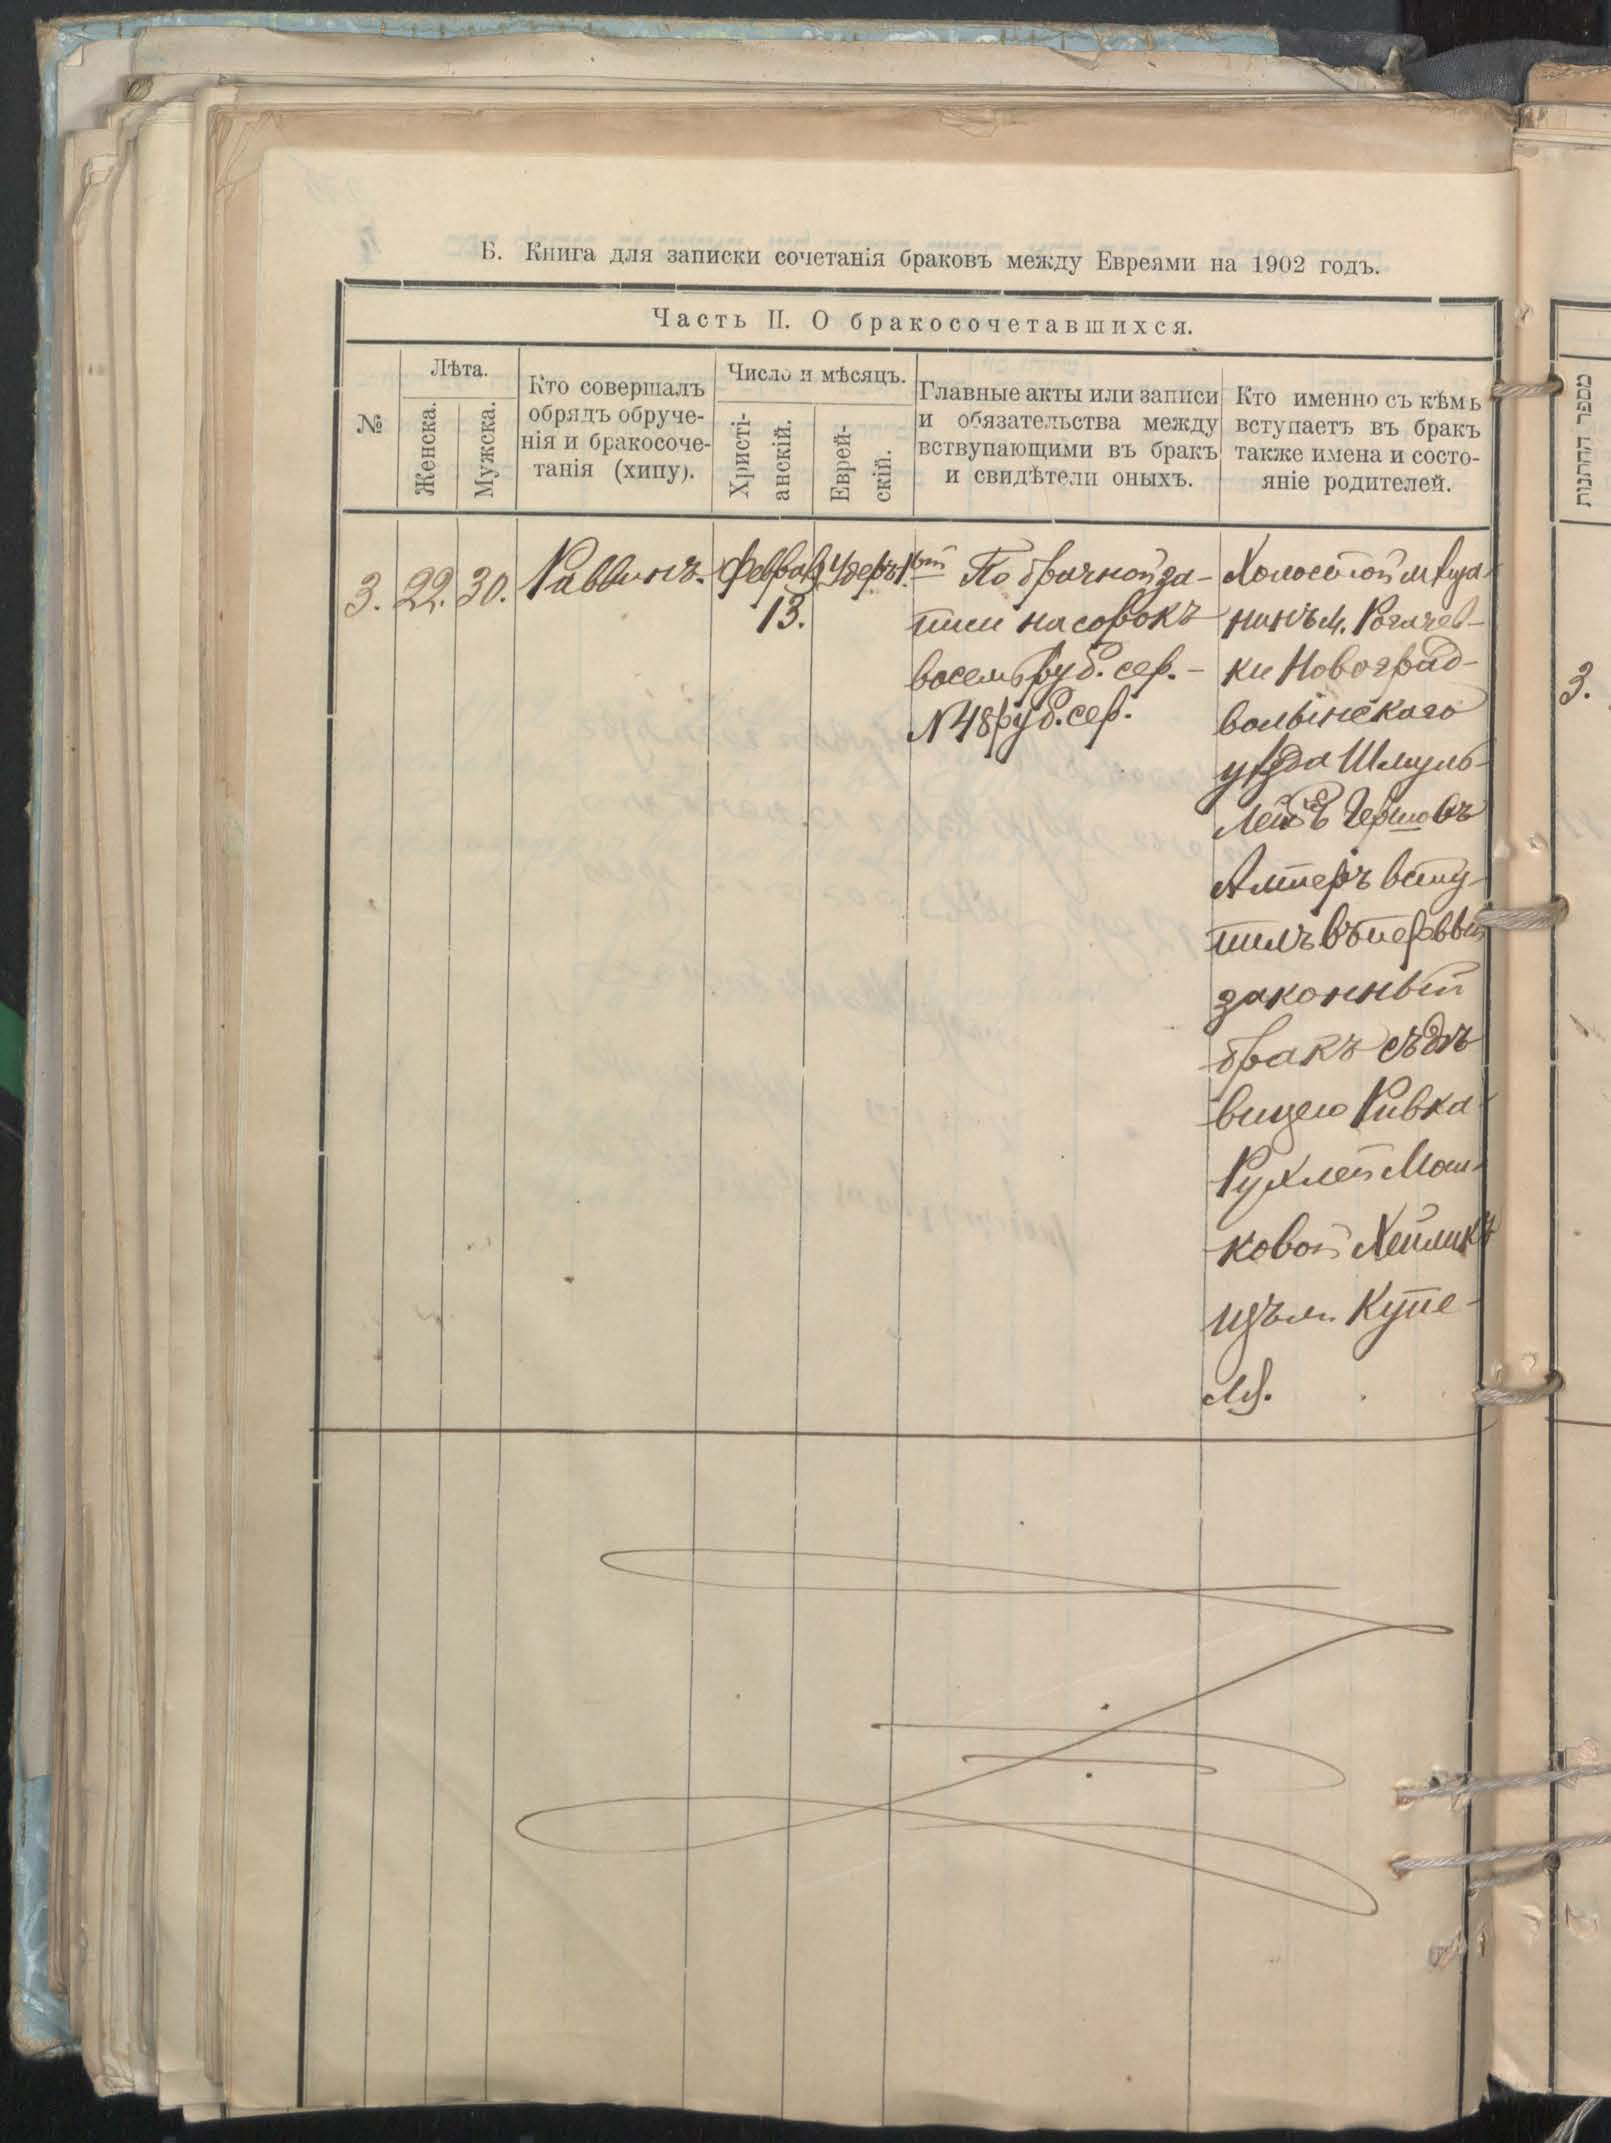 Б. Книга для записки сочетанія браковъ между Евреями на 1902 годъ.
Часть II. О бракосочетавшихся.
№
Лѣта.
Женска.
Мужска.
Кто совершалъ
обрядъ обруче-
нія и бракосоче-
танія (хипу).
Число и мѣсяцъ.
Христі-
анскій.
Еврей-
скій.
Главные акты или записи
и обязательства между
вствупающими въ бракъ
и свидѣтели оныхъ.
Кто именно съ кѣмъ
вступаетъ въ бракъ
также имена и состо-
яніе родителей.
3. 22. 30. Раввинъ.
Феврал.
13.
По брачной за-
писи на сорокъ
восемь руб. сер. -
№ 48 руб. сер.
Холостой мѣща-
нинъ м. Рогачев-
ки Новоград-
волынскаго
уѣзда Шмуль-
Лейбъ Гершовъ
Амтеръ всту-
пилъ въ первый
законный
бракъ съ дѣ-
вицею Ривка-
Рухлей Мош-
ковой
изъ м. Купе-
ля.
מספר החתונות
3.